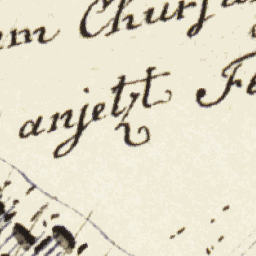 em Churfü
anjetzt Fe